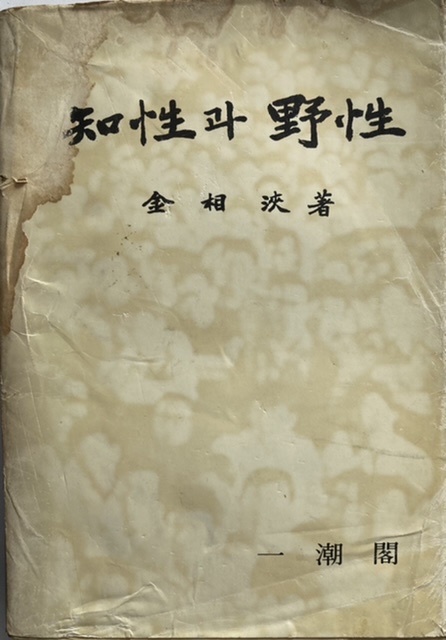 知性과 野性
金相浹著
一潮閣